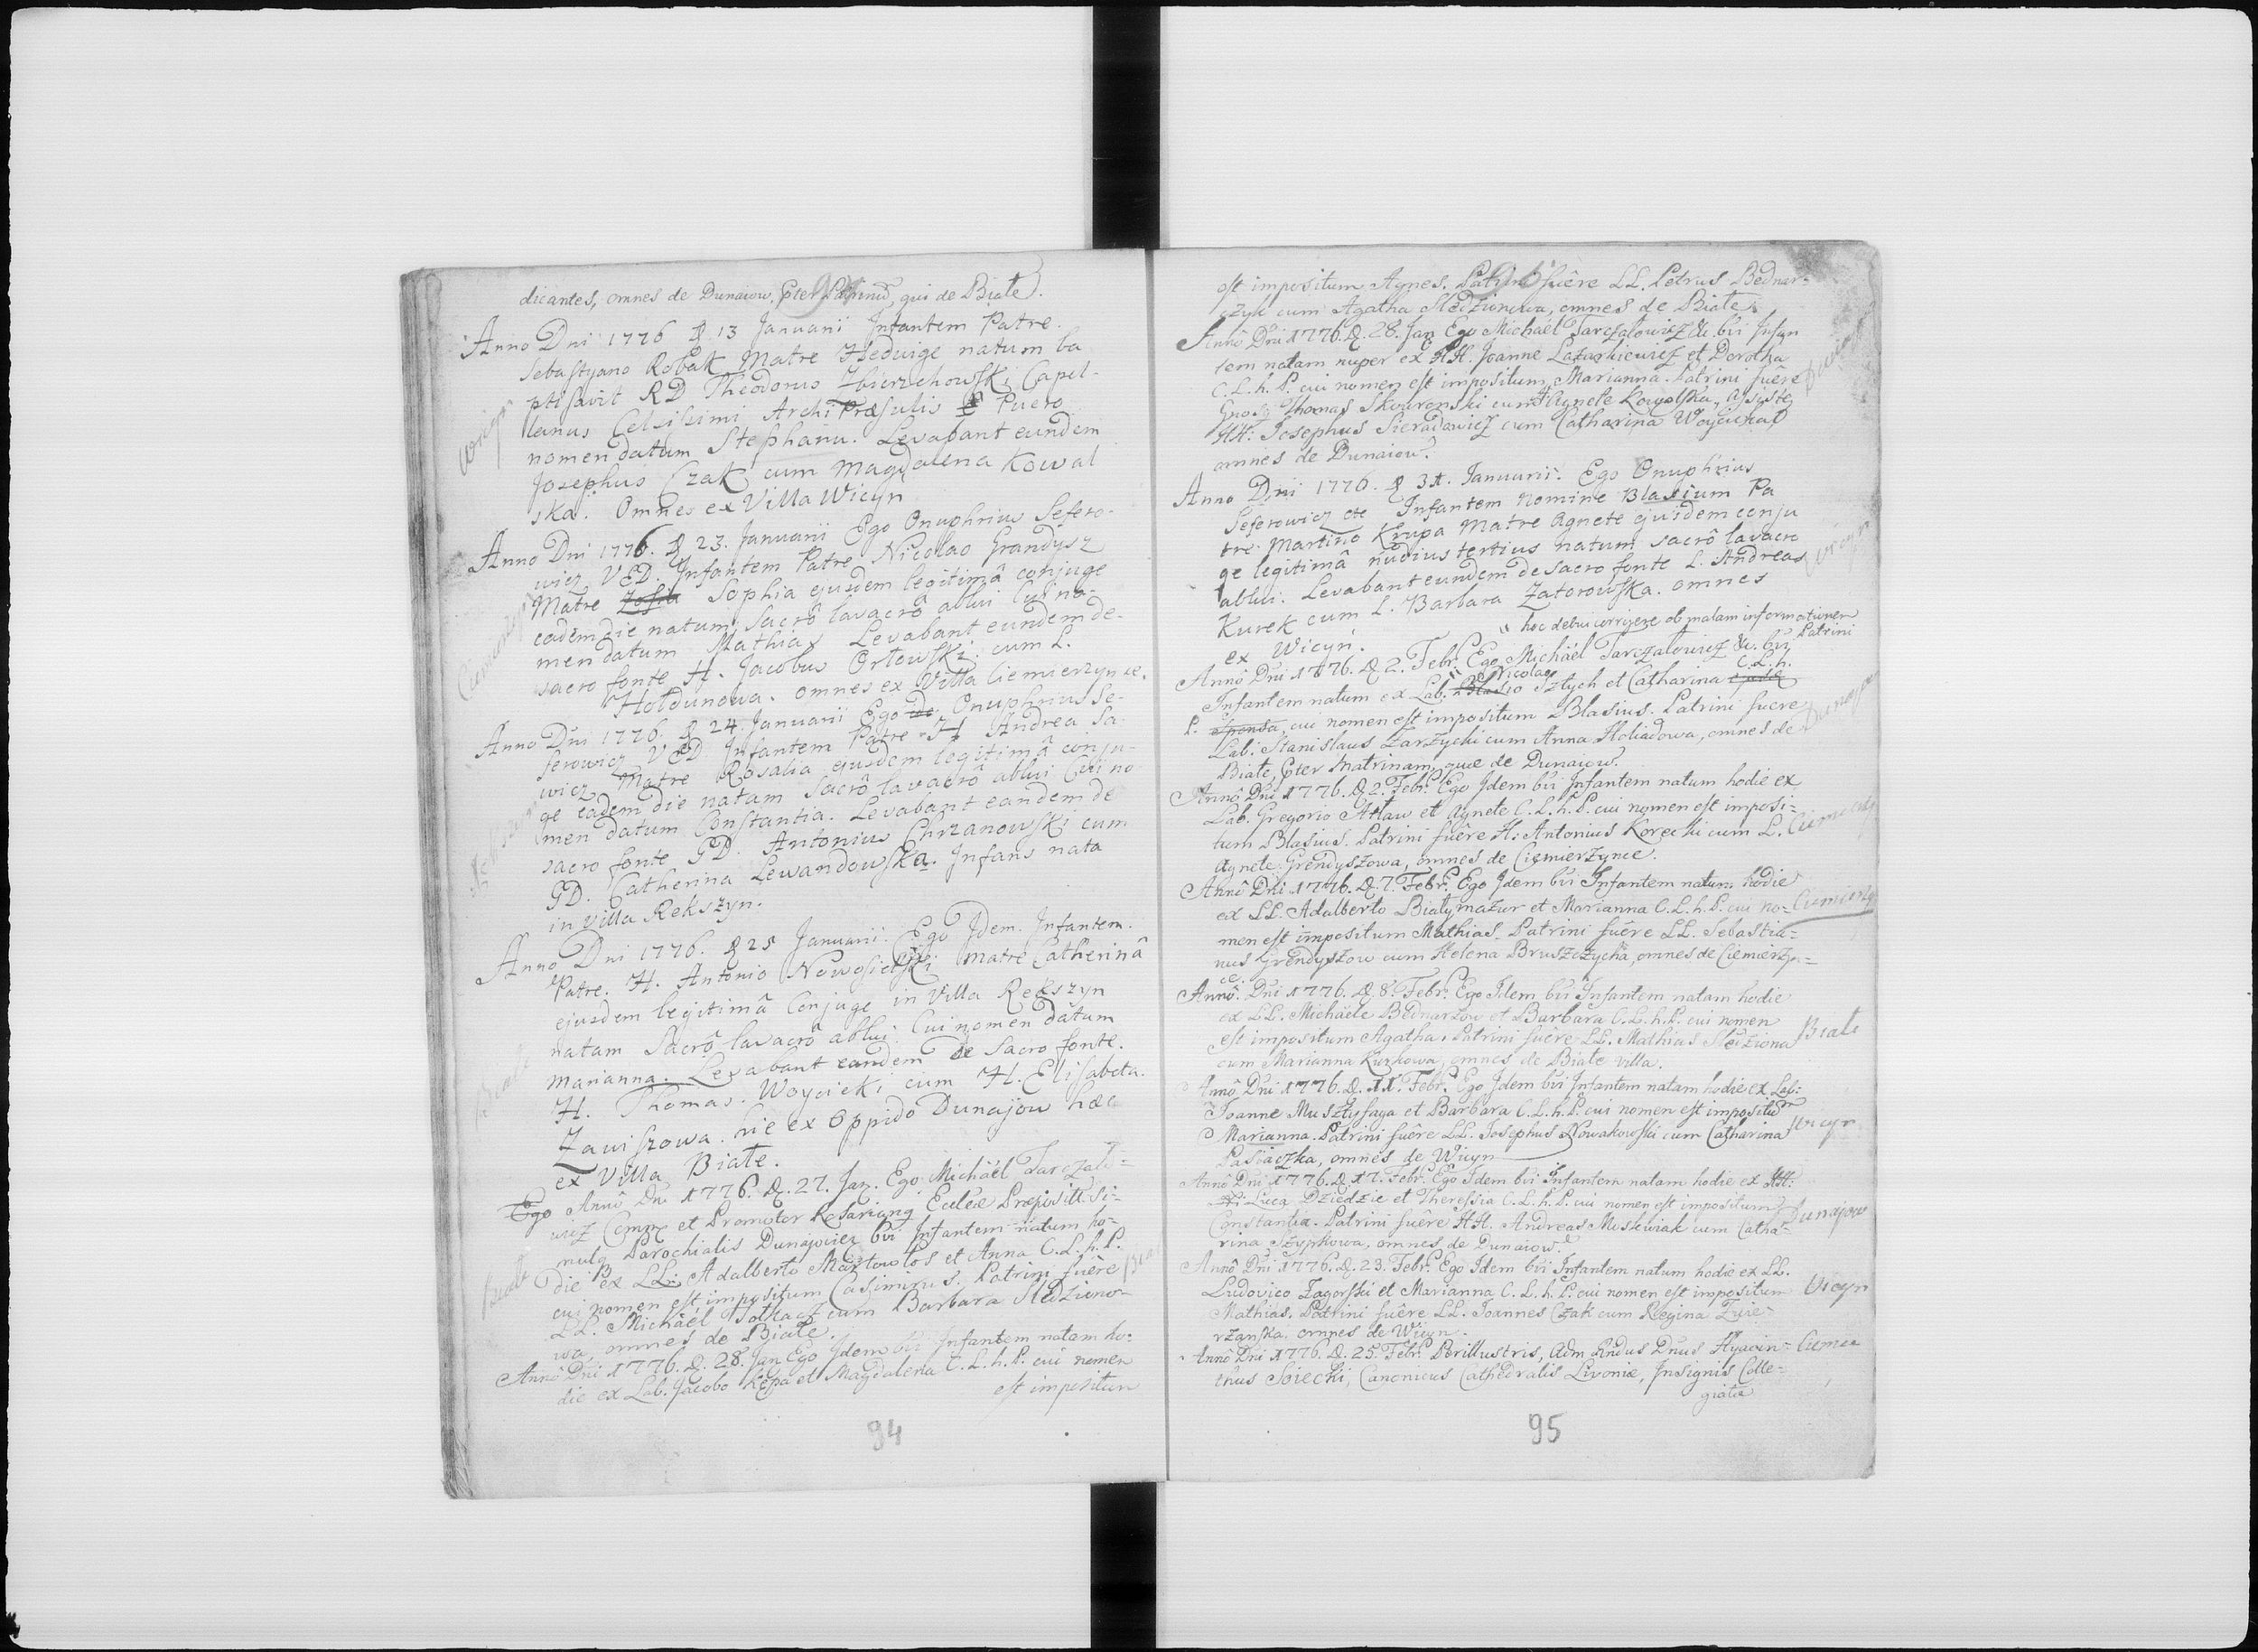 94
dicantes, omnes de Dunaiow, pter Patrinũ, qui de Białe.
Anno Dni 1776 D 13 Januarii Infantem Patre
Sebastyano Robak Matre Hedvige natum ba
ptisavit RD Theodorus Zbierzchowski Capel-
lanus Celsissimi Archi Præsulis Puero
nomen datum Stephanu. Levabant eundem
Josephus Czak cum Magdalena Kowal
ska. Omnes ex Villa Wicyn
Wicyn
Anno Dni 1776. D 23. Januarii Ego Onuphrius Sefero-
wicz VED. Infantem Patre Nicolao Grandysz
Matre Zofia Sophia ejusdem legitimâ conjuge
eadem die natum, Sacrô lavacrô ablui Cui no-
men datum Mathias Levabant eundem de
sacro fonte H. Jacobus Orłowski cum L.
Hołdunowa. omnes ex Villa Ciemierzynce.
Anno Dni 1776. D 24. Januarii Ego de Onuphrius Se-
ferowicz VED. Infantem Patre H Andrea Sa
wicz Matre Rosalia ejusdem legitimâ conju-
ge eadem die natam Sacrô lavacrô ablui Cui no
men datum Constantia. Levabant eandem de
sacro fonte GD. Antonius Chrzanowski cum
GD. Catherina Lewandowska. Infans nata
in Villa Rekszyn.
Anno Dni 1776. D 25 Januarii. Ego Idem. Infantem.
Patre. H. Antonio Nowosielski Matre Catherinâ
ejusdem legitimâ Conjuge in Villa Rekszyn
natam Sacrô lavacrô ablui. Cui nomen datum
Marianna. Levabant eandem de Sacro fonte.
H. Thomas. Woycicki cum H. Elisabeta.
Zawiszowa. hic ex Oppido Dunajow hæc
ex Villa Białe.
Biale
Ego Annô Dni 1776. D. 27. Jan. Ego Michäél Tarczało-
wicz Comm et Promotor Eccłæ Præposit. Si-
mulq Parochialis Dunajoviens bvi Infantem natum ho-
die ex LL. Adalberto Marzowłos et Anna C. L. h. P.
cui nomen est impositum Casimirus. Patrini fuêre
LL. Michäél Tołkacz cum Barbara Sledziono-
wa, omnes de Białe.
Biale
Annô Dni 1776. D. 28. Jan Ego Idem bvi Infantem natam ho-
die ex Lab. Jacobo Rzepa et Magdalena C. L. h. P. cui nomen
est impositum
94
95
est impositum Agnes. Patrini fuêre LL. Petrus Bednar-
czyk cum Agatha Sledzionowa, omnes de Białe.
Annô Dni 1776. D. 28. Jan Ego Michäél Tarczałowicz &c. bvi Infan
tem natam nuper ex HH. Joanne Łazarkiewicz et Dorotha
C. L. h. P. cui nomen est impositum Marianna. Patrini fuêre
Gnosq Thomas Skwarenski cum Agnete Kowolska, Assiste
HH: Josephus Sieradowicz cum Catharina Woyciicka
omnes de Dunaiow.
Anno Dni 1776. D 31. Januarii. Ego Onuphrius
Seferowicz etc Infantem nomine Blasium Pa
tre. Martino Krupa Matre Agnete ejusdem conju
ge legitimâ nudius tertius natum sacrô lavacro
ablui. Levabant eundem de sacro fonte L. Andreas
Kurek cum L. Barbara Zatorowska. omnes
ex Wicyn.
Wicyn
hoc debui corrigere ob malam informationem
Patrini
Annô Dni 1776. D. 2. Febr. Ego Michäél Tarczałowicz &c. bvi
Infantem natum ex Lab. Blasio Nicolao Sztych et Catharina C. L. h.
P. Sponsa, cui nomen est impositum Blasius. Patrini fuere
Lab: Stanislaus Zarzycki cum Anna Holiadowa, omnes de
Białe, pter Matrinam, quæ de Dunaiow.
Annô Dni 1776. D. 2. Febr. Ego Idem bvi Infantem natum hodie ex
Lab. Gregorio Atław et Agnete C. L. h. P. cui nomen est imposi-
tum Blasius. Patrini fuêre H: Antonius Korecki cum L.
Agnete Grendyszowa, omnes de Ciemierzynce.
Annô Dni 1776. D. 7. Febr. Ego Idem bvi Infantem natum hodie
ex LL. Adalberto Białymazur et Marianna C. L. h. P. cui no-
men est impositum Mathias. Patrini fuêre LL. Sebastia-
nus Grendyszow cum Helena Bruszczycka, omnes de Ciemierzyn-
ce.
Annô. Dni 1776. D. 8. Febr. Ego Idem bvi Infantem natam hodie
ex LL. Michäele Bednarzow et Barbara C. L. h. P. cui nomen
est impositum Agatha. Patrini fuêre LL. Mathias Sledziona
cum Marianna Kurkowa, omnes de Białe villa.
Biale
Annô Dni 1776. D. 11. Febr. Ego Idem bvi Infantem natam hodie ex Lab:
Joanne Musztyfaga et Barbara C. L. h. P. cui nomen est impositũ
Marianna. Patrini fuêre LL. Josephus Nowakowski cum Catharina
Pasiaczka, omnes de Wicyn
Wicyn
Annô Dni 1776. D. 17. Febr. Ego Idem bvi Infantem natam hodie ex HH:
Luca Dziedzic et Theressia C. L. h. P. cui nomen est impositum
Constantia. Patrini fuêre HH. Andreas Moskwiak cum Catha-
rina Szypkowa, omnes de Dunaiow.
Dunajow
Annô Dni 1776. D. 23. Febr. Ego Idem bvi Infantem natum hodie ex LL.
Ludovico Zagorski et Marianna C. L. h. P. cui nomen est impositum
Mathias. Patrini fuêre LL. Joannes Czak cum Regina Zwie-
rzanska, omnes de Wicyn.
Vicyn
Annô Dni 1776. D. 25. Febr. Perillustris, Adm Rndus Dnus Hyacin-
thus Siecki, Canonicus Cathedralis Livoniæ, Insignis Colle-
giatæ
95